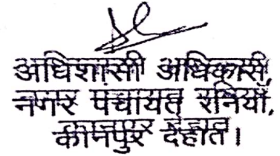 अधिशासी अधिकारी,
नगर पंचायत रनियाँ,
कानपुर देहात।